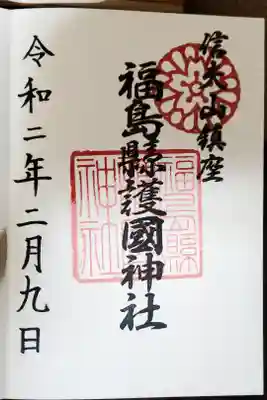 信夫山鎮座
福島縣護國神社
令和二年二月九日
福島縣
神社